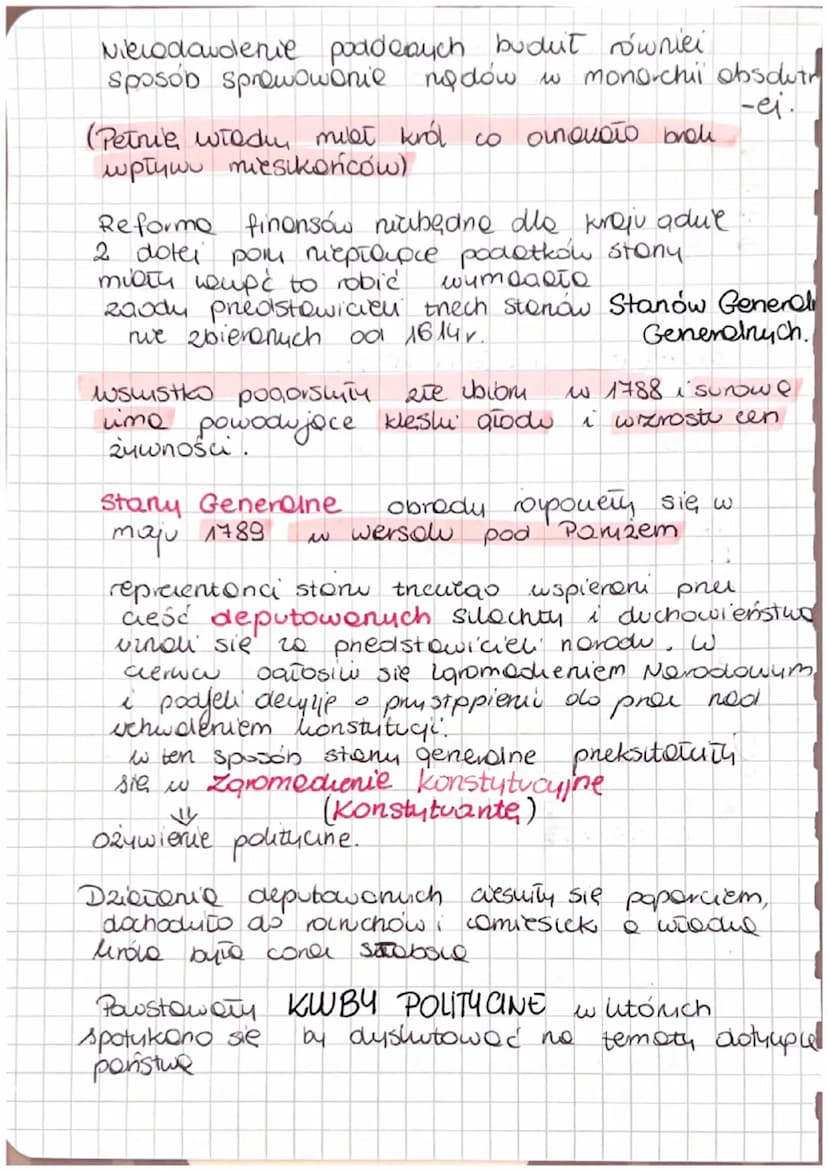 Niezadowolenie poddanych budził również
sposób sprawowania rządów w monarchii absolutn
-ej.
(Pełnię władzy miał król co oznaczało brak
wpływu mieszkańców)
Reforma finansów niezbędna dla kraju gdzie
2 dotej pory niepłacące podatków stany
miały zacząć to robić wymagała
zgody przedstawicieli trzech stanów Stanów General
nie zbieranych od 1614r. Generalnych.
wszystko pogorszyły złe zbiory w 1788 i surowa
zima powodujące klęski głodu i wzrostu cen
żywności.
Stany Generalne obrady rozpoczęły się w
maju 1789 w wersalu pod Paryżem
reprezentanci stanu trzeciego wspierani przez
cześć deputowanych szlachty i duchowieństwa
uznali się za przedstawicieli narodu. W
czerwcu ogłosili się Zgromadzeniem Narodowym
i podjeli decyzję o przystąpieniu do prac nad
uchwaleniem konstytucji.
w ten sposób stany generalne przekształciły
się w Zgromadzenie Konstytucyjne
(Konstytuantę)
ożywienie polityczne.
Działania deputowanych cieszyły się poparciem,
dochodziło do rozruchów i zamieszek a władza
króla była coraz słabsza
Powstawały KLUBY POLITYCZNE w których
spotykano się by dyskutować na tematy dotyczące
państwa